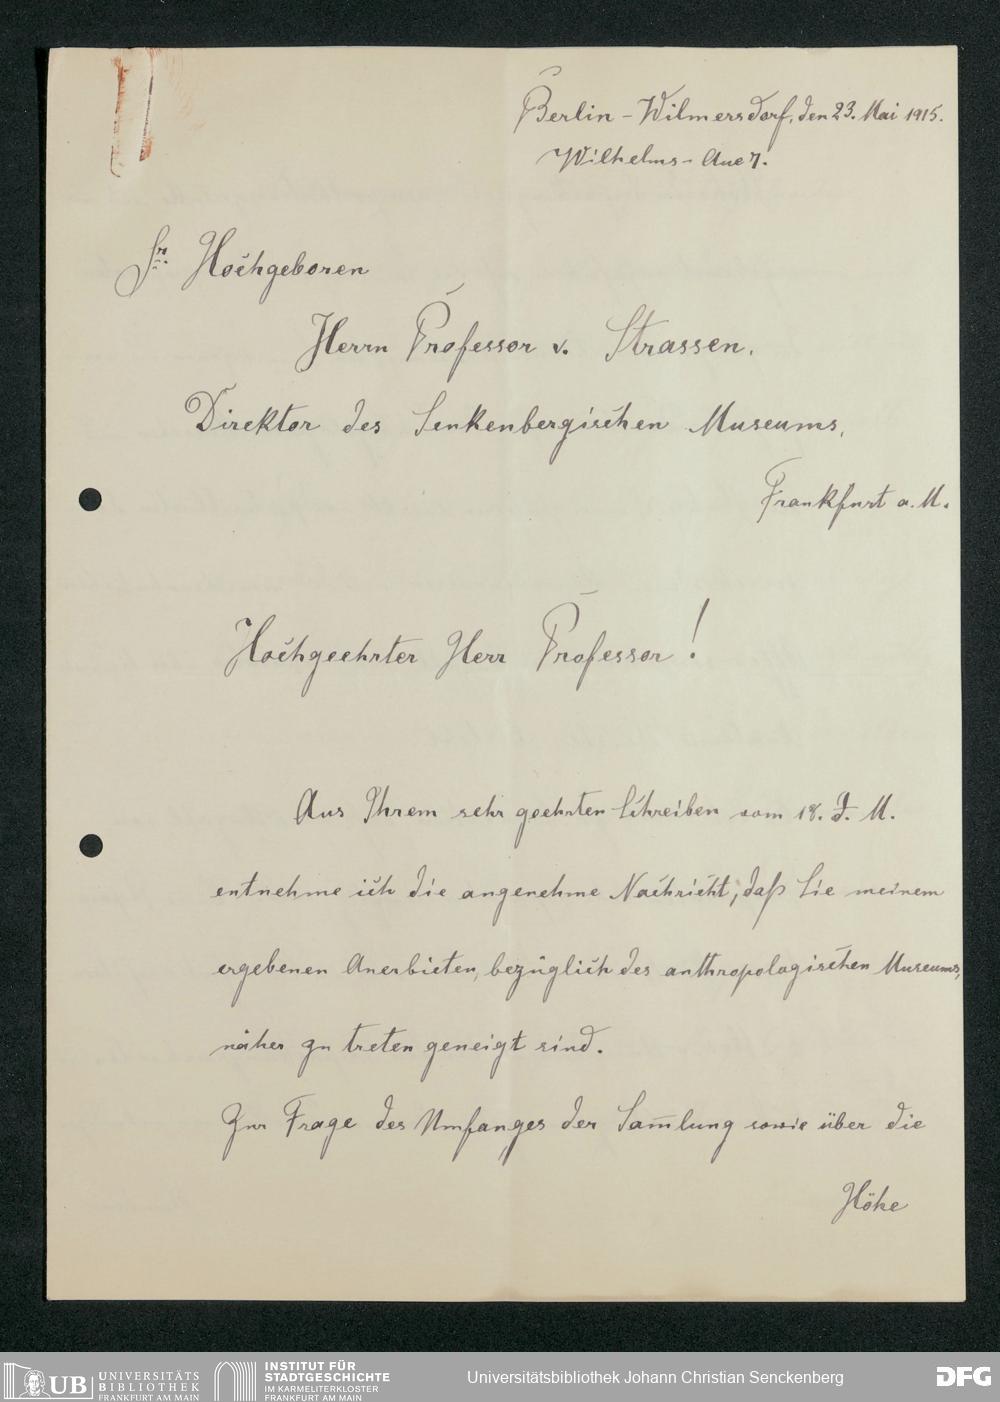 Berlin-Wilmersdorf, den 23. Mai 1915.
Wilhelms-Aue 7.
Sr. Hochgeboren
Herrn Professor v. Strassen.
Direktor des Senkenbergischen Museums,
Frankfurt a. M.
Hochgeehrter Herr Professor!
Aus Ihrem sehr geehrten Schreiben vom 18. d. M.
entnehme ich die angenehme Nachricht, daß Sie meinem
ergebenen Anerbieten, bezüglich des anthropologischen Museums,
näher zu treten geneigt sind.
Zur Frage des Umfanges der Sam̅lung sowie über die
Höhe
UB UNIVERSITÄTS
BIBLIOTHEK
FRANKFURT AM MAIN
INSTITUT FÜR
STADTGESCHICHTE
IM KARMELITERKLOSTER
FRANKFURT AM MAIN
Universitätsbibliothek Johann Christian Senckenberg
DFG